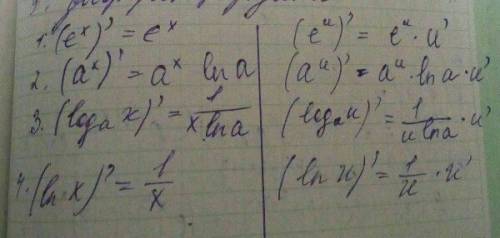 1. (e^x)' = e^x
2. (a^x)' = a^x ln a
3. (log_a x)' = 1/(x ln a)
4. (ln x)' = 1/x
(e^u)' = e^u · u'
(a^u)' = a^u · ln a · u'
(log_a u)' = 1/(u ln a) · u'
(ln u)' = 1/u · u'